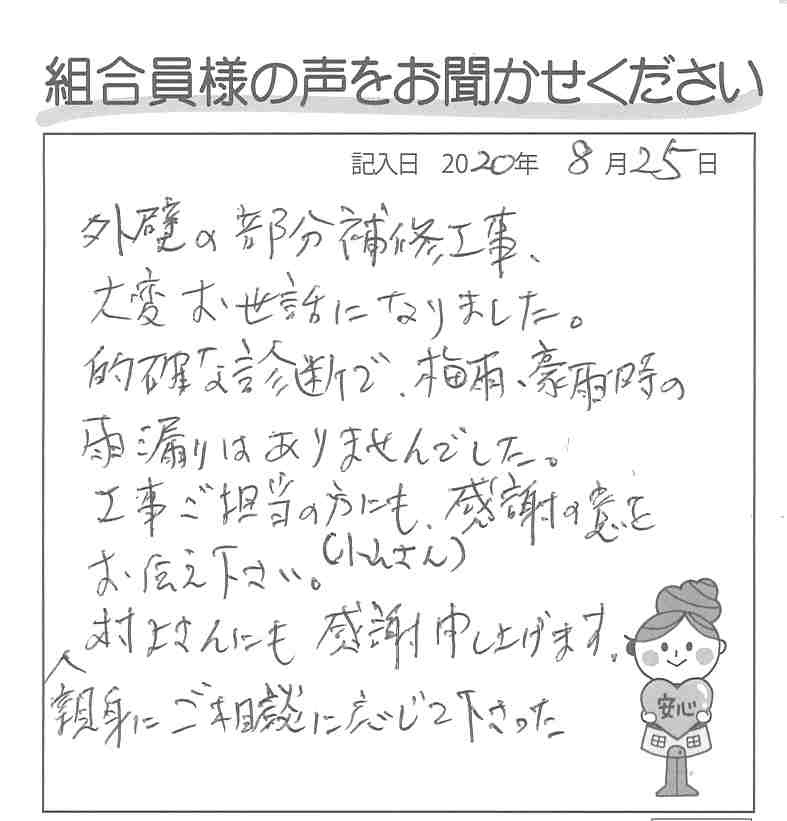 組合員様の声をお聞かせください
記入日 2020年 8月25日
外壁の部分補修工事、
大変お世話になりました。
的確な診断で、梅雨、豪雨時の
雨漏りはありませんでした。
工事ご担当の方にも、感謝の意を
(小山さん)
お伝え下さい。
村上さんにも 感謝申し上げます。
親身にご相談に応じて下さった
安心